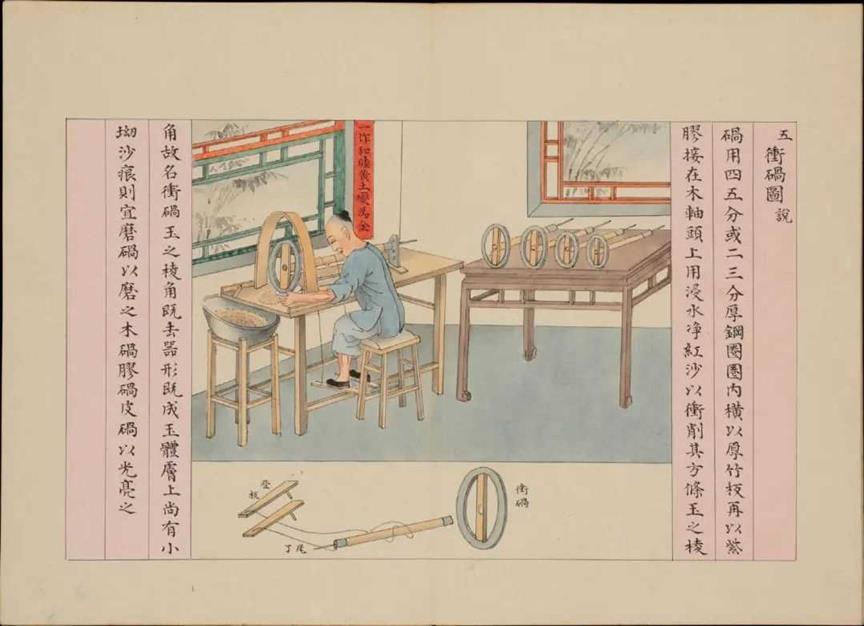 五 衝碢圖 說
碢用四五分或二三分厚鋼圈圈內橫以厚竹板再以紫
膠接在木軸頭上用浸水净紅沙以衝削其方條玉之棱
角故名衝碢玉之棱角既去器形既成玉體膚上尚有小
坳沙痕則宜磨碢以磨之木碢膠碢皮碢以光亮之
一作和睦黄土變為金
衝碢
登板
尾丁